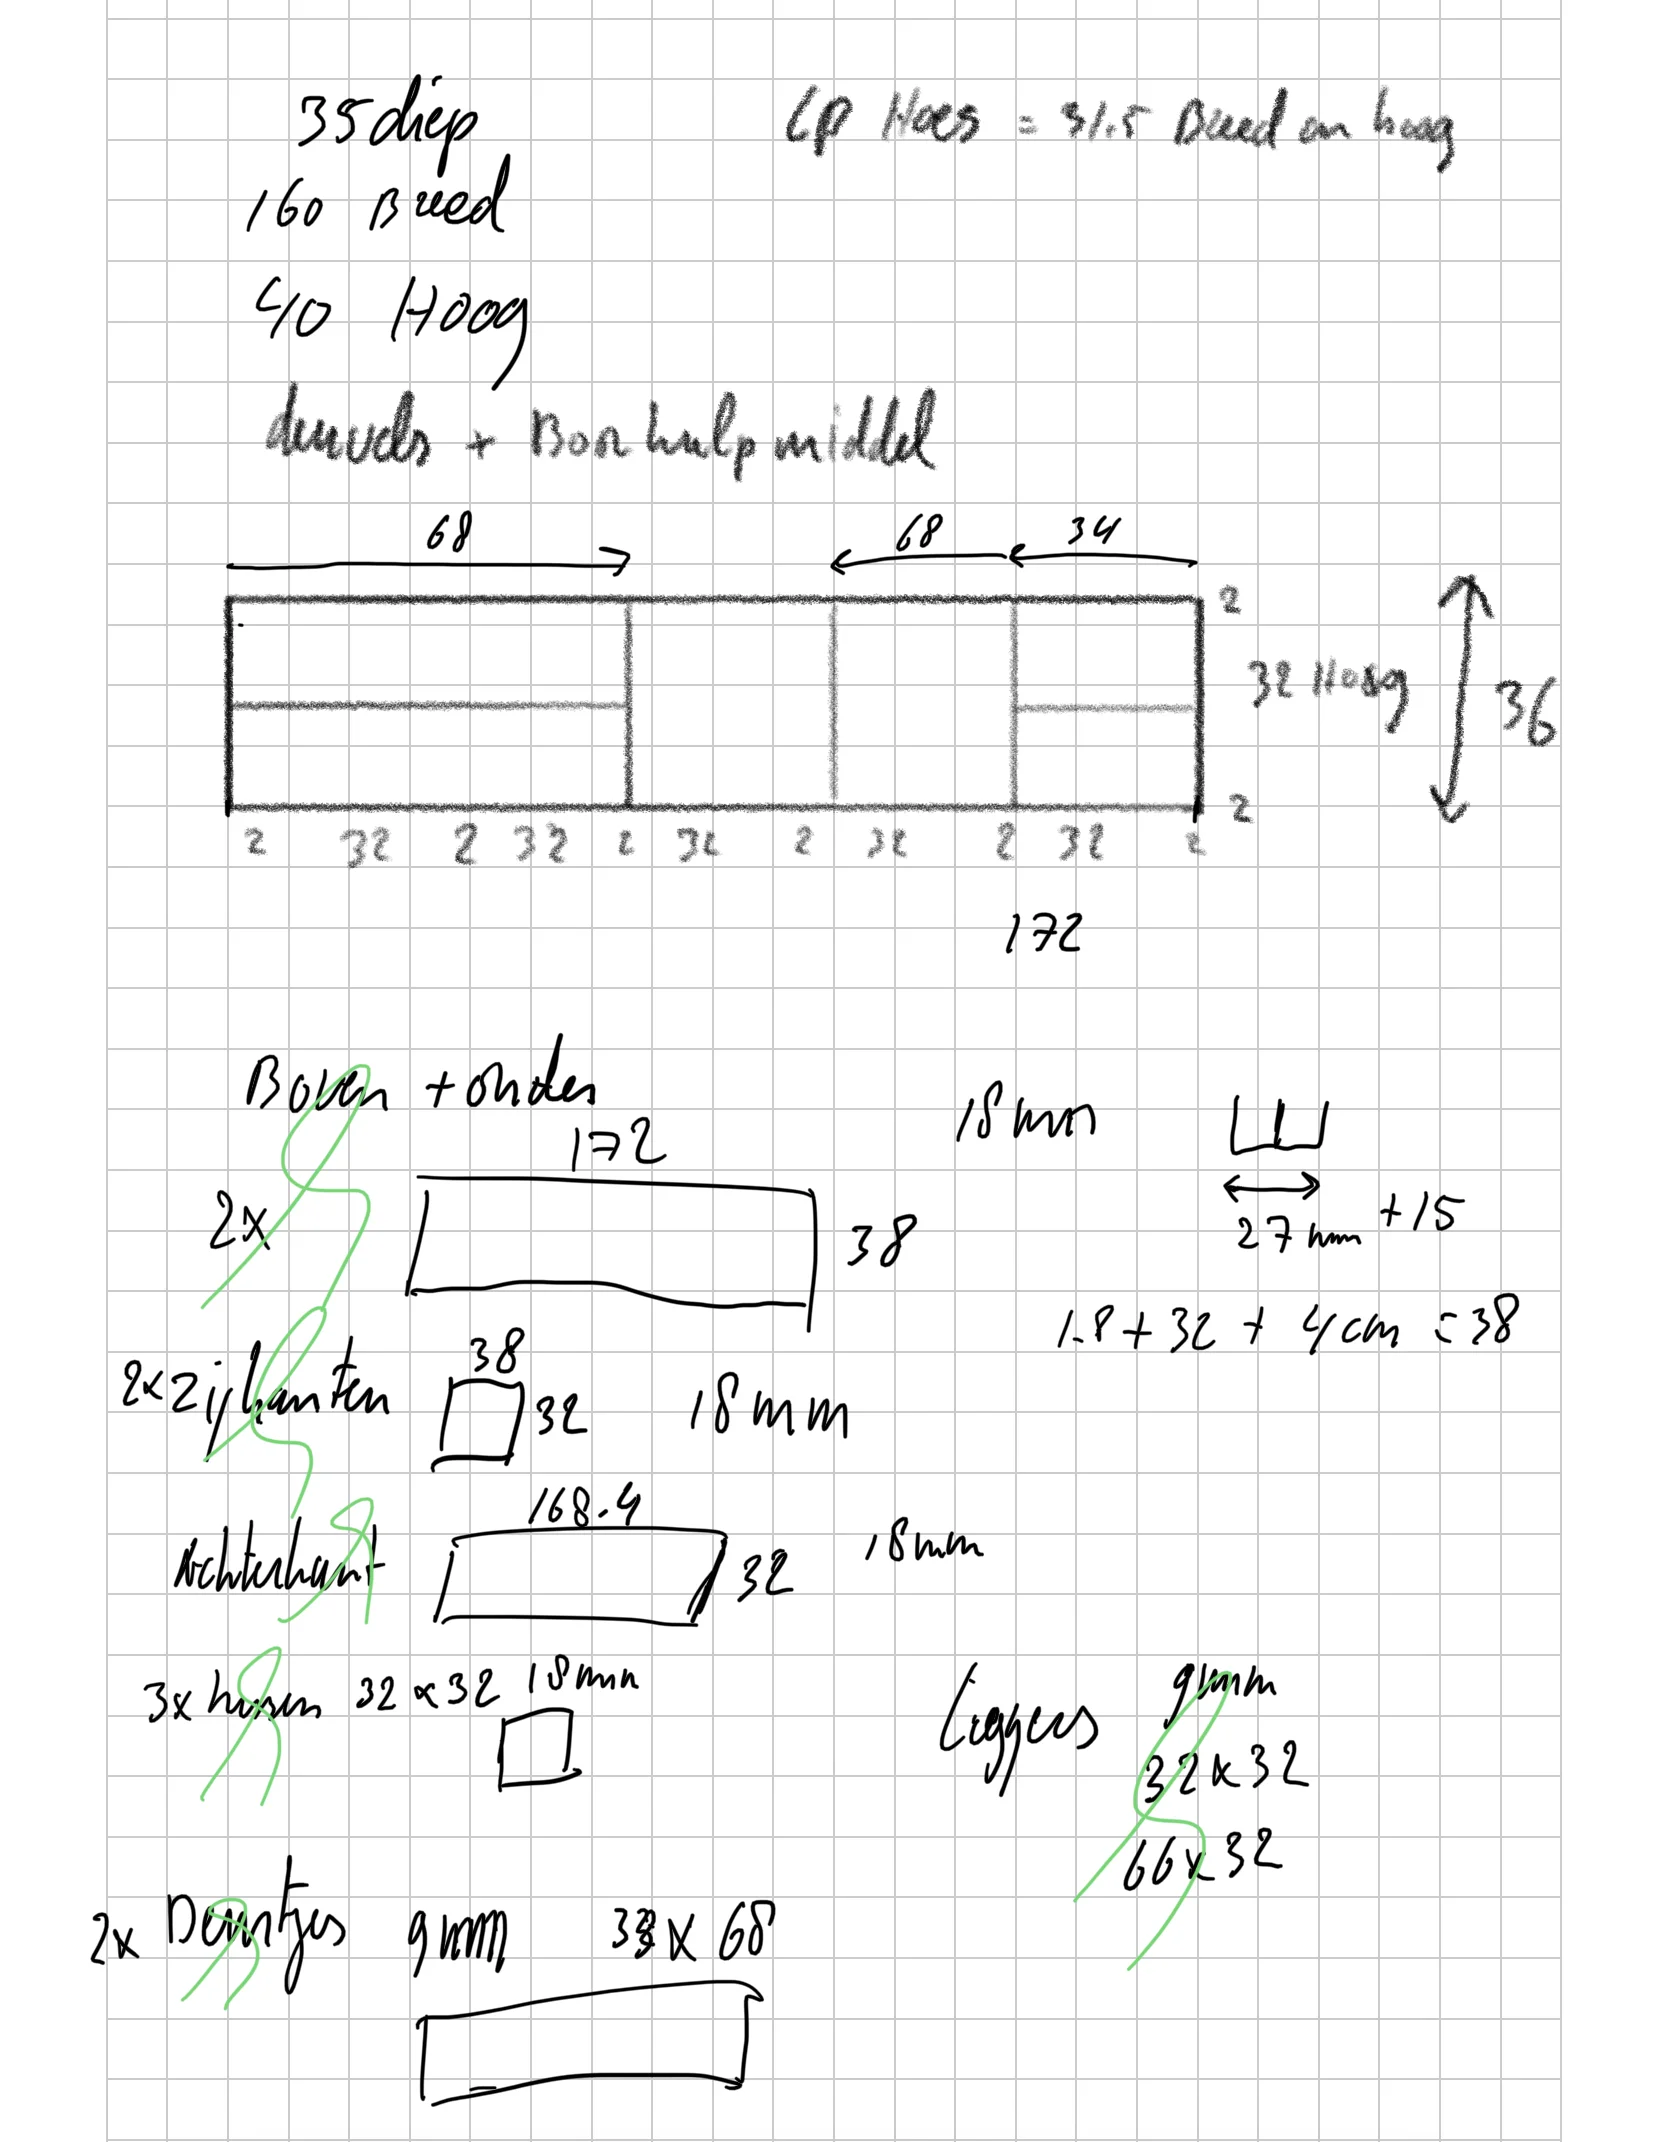 35 diep
Lp Hoes = 31.5 Breed en hoog
160 Breed
40 Hoog
deuvels + Boor hulp middel
68
68
34
2
32 Hoog
36
2
2 32 2 32 2 32 2 32 2 32 2
172
Boven + onder
172
18mm
2x
38
27mm +15
1.8 + 32 + 4cm = 38
2x Zijkanten
38
32
18mm
168.4
Achterkant
32
18mm
3x 32 x 32 18mm
Liggers 9mm
32x32
66x32
2x Deurtjes 9mm 33 x 68